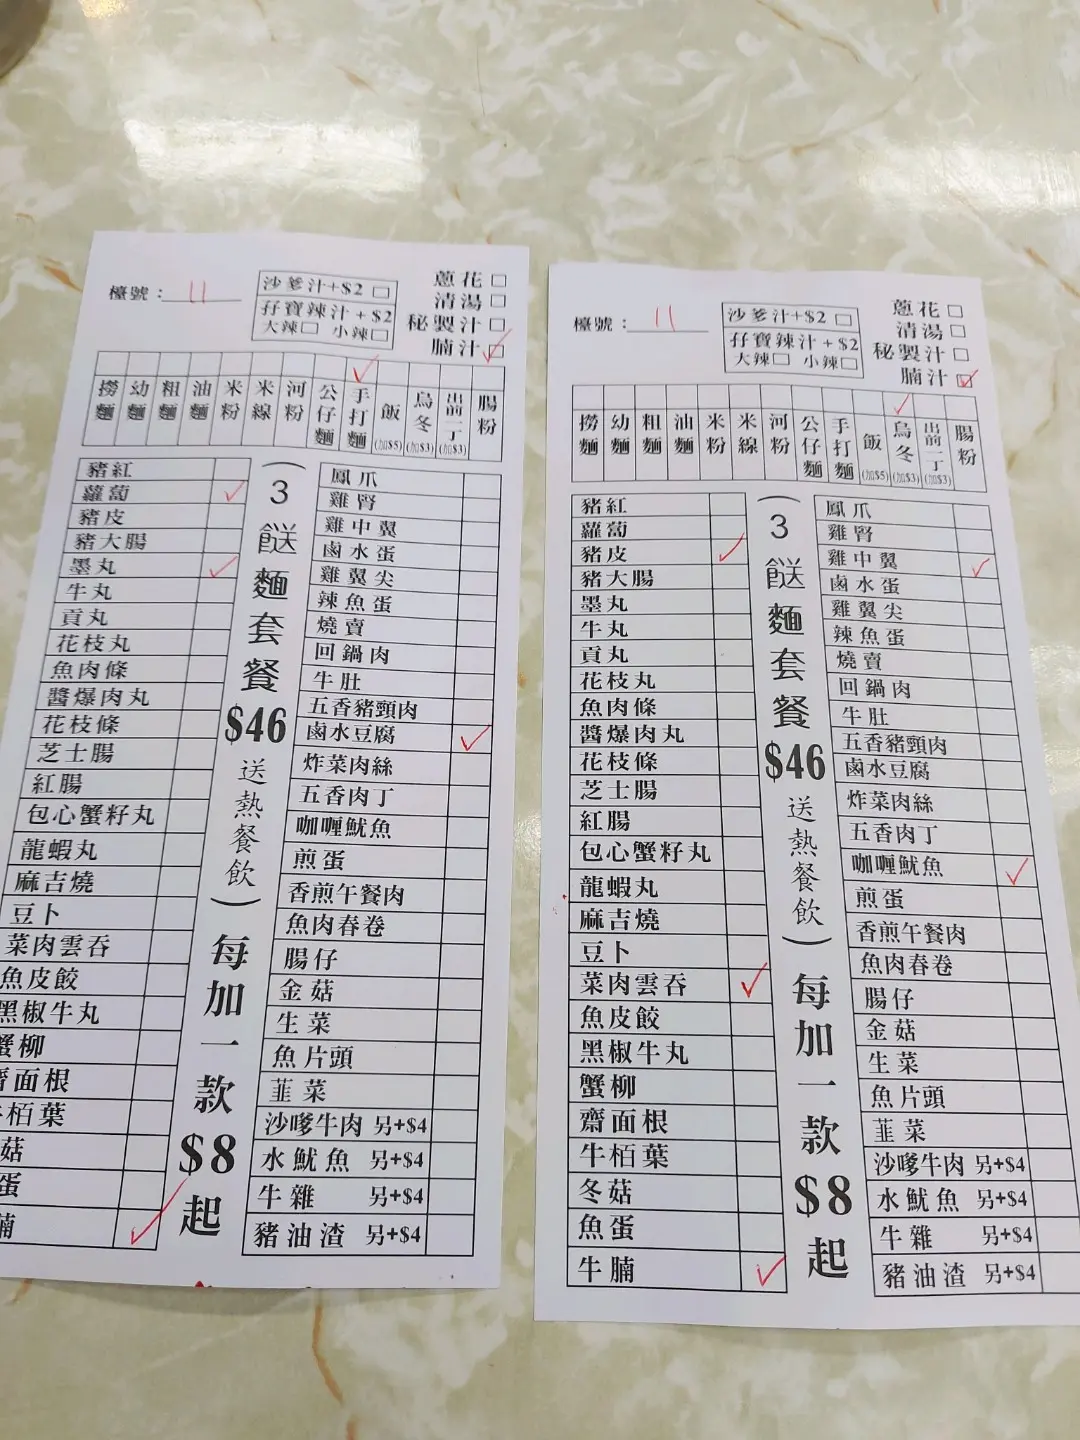 檯號：11
沙爹汁+$2 □
孖寶辣汁+$2
大辣□ 小辣□
蔥花 □
清湯 □
秘製汁 □
腩汁 □
撈麵
幼麵
粗麵
油麵
米粉
米線
河粉
公仔麵
手打麵
飯(加$5)
烏冬(加$3)
出前一丁(加$3)
腸粉
豬紅
蘿蔔
豬皮
豬大腸
墨丸
牛丸
貢丸
花枝丸
魚肉條
醬爆肉丸
花枝條
芝士腸
紅腸
包心蟹籽丸
龍蝦丸
麻吉燒
豆卜
菜肉雲吞
魚皮餃
黑椒牛丸
蟹柳
齋面根
牛栢葉
菇
蛋
腩
（3餸麵套餐$46送熱餐飲）每加一款$8起
鳳爪
雞腎
雞中翼
鹵水蛋
雞翼尖
辣魚蛋
燒賣
回鍋肉
牛肚
五香豬頸肉
鹵水豆腐
炸菜肉絲
五香肉丁
咖喱魷魚
煎蛋
香煎午餐肉
魚肉春卷
腸仔
金菇
生菜
魚片頭
韮菜
沙嗲牛肉 另+$4
水魷魚 另+$4
牛雜 另+$4
豬油渣 另+$4
檯號：11
沙爹汁+$2 □
孖寶辣汁+$2
大辣□ 小辣□
蔥花 □
清湯 □
秘製汁 □
腩汁 □
撈麵
幼麵
粗麵
油麵
米粉
米線
河粉
公仔麵
手打麵
飯(加$5)
烏冬(加$3)
出前一丁(加$3)
腸粉
豬紅
蘿蔔
豬皮
豬大腸
墨丸
牛丸
貢丸
花枝丸
魚肉條
醬爆肉丸
花枝條
芝士腸
紅腸
包心蟹籽丸
龍蝦丸
麻吉燒
豆卜
菜肉雲吞
魚皮餃
黑椒牛丸
蟹柳
齋面根
牛栢葉
冬菇
魚蛋
牛腩
（3餸麵套餐$46送熱餐飲）每加一款$8起
鳳爪
雞腎
雞中翼
鹵水蛋
雞翼尖
辣魚蛋
燒賣
回鍋肉
牛肚
五香豬頸肉
鹵水豆腐
炸菜肉絲
五香肉丁
咖喱魷魚
煎蛋
香煎午餐肉
魚肉春卷
腸仔
金菇
生菜
魚片頭
韮菜
沙嗲牛肉 另+$4
水魷魚 另+$4
牛雜 另+$4
豬油渣 另+$4